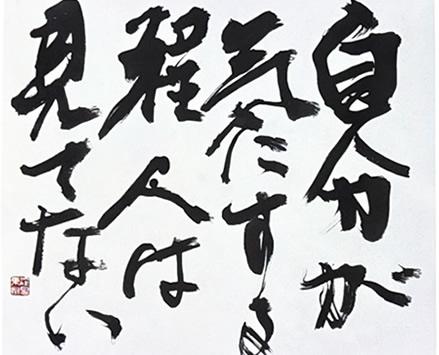 自分が
気にする
程人は
見てない